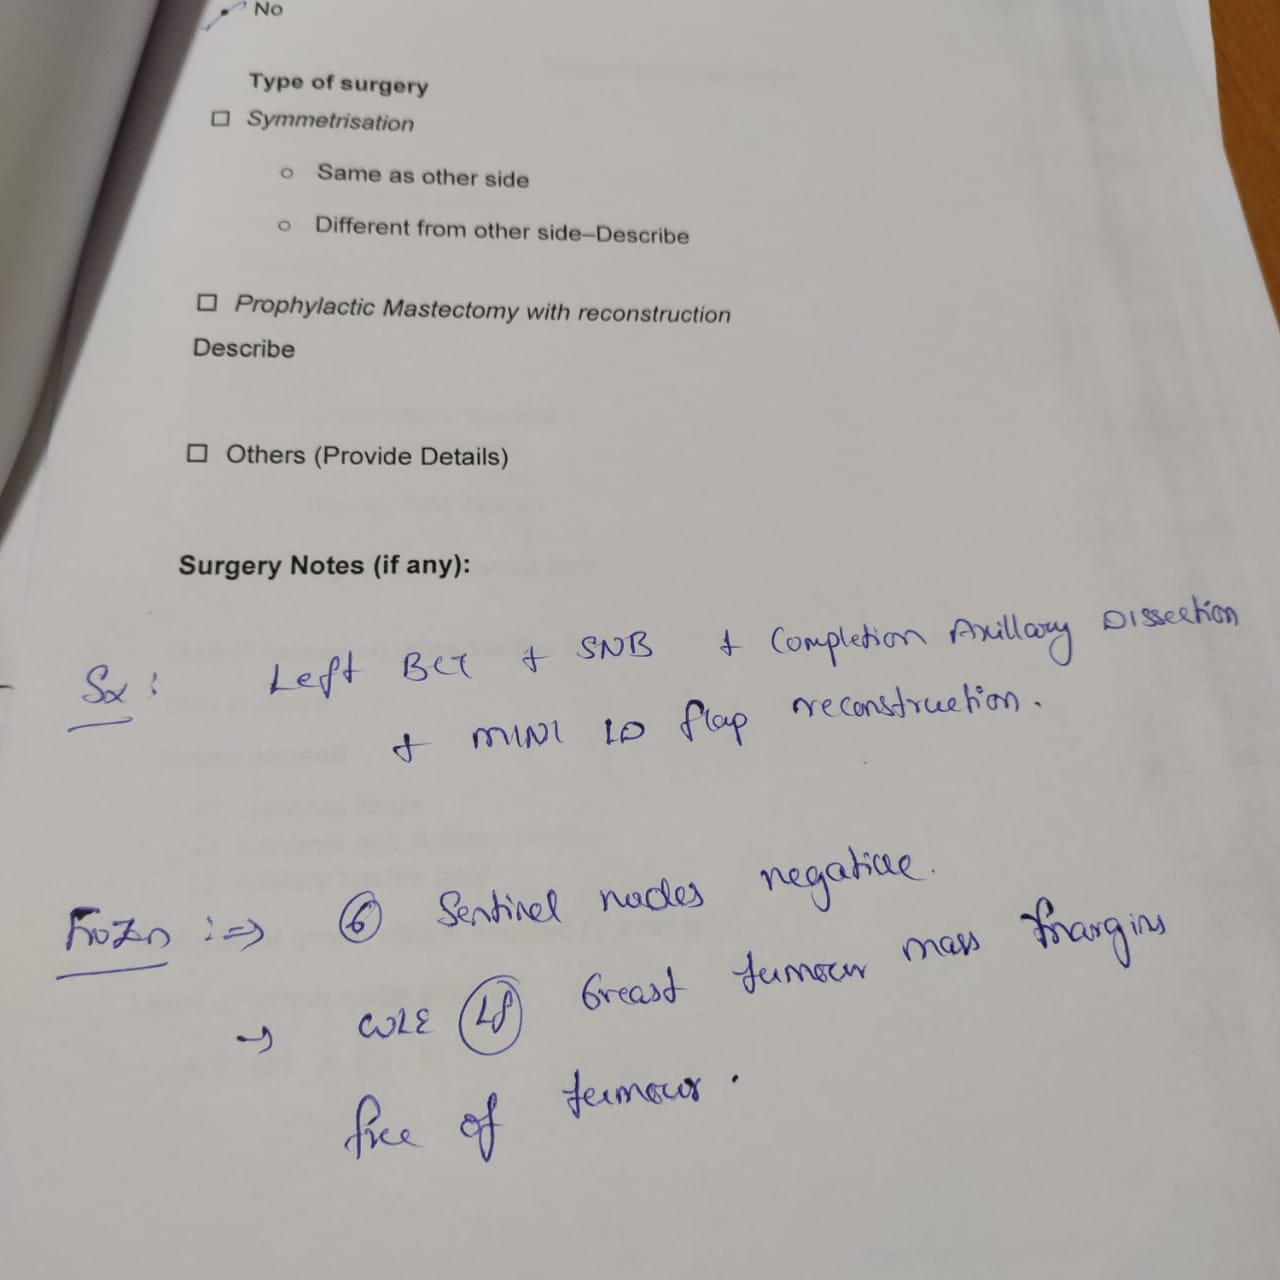 No
Type of surgery
☐ Symmetrisation
○ Same as other side
○ Different from other side–Describe
☐ Prophylactic Mastectomy with reconstruction
Describe
☐ Others (Provide Details)
Surgery Notes (if any):
Sx : Left BCT + SNB + Completion Axillary Dissection
+ MINI LD flap reconstruction.
Frozen :⇒ ⑥ Sentinel nodes negative.
→ WLE breast tumour mass margins
free of tumour.